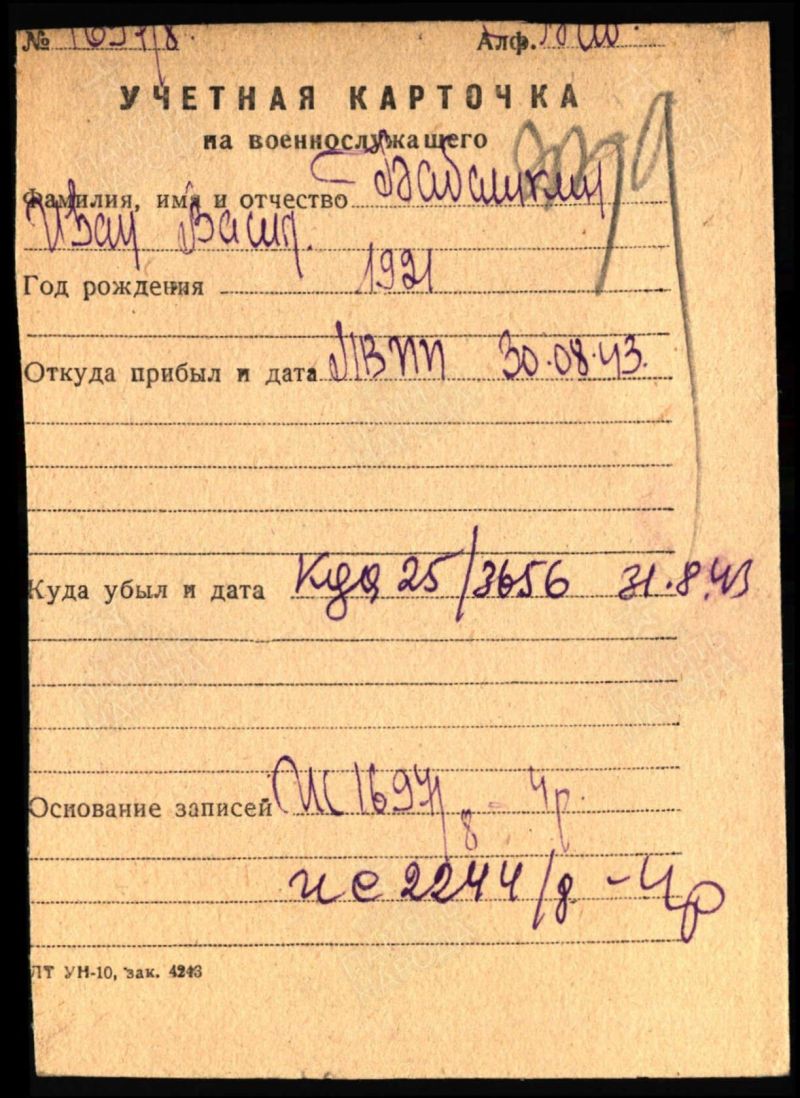 № 1697/8. Алф.
УЧЕТНАЯ КАРТОЧКА
на военнослужащего
Фамилия, имя и отчество Бабашкин
Иван Васил.
Год рождения 1921
Откуда прибыл и дата МВПП 30.08.43.
Куда убыл и дата 25/3656 31.8.43
Основание записей 1697/8 - 4р.
ис 2244/8 - 4р
ЛТ УН-10, зак. 4243